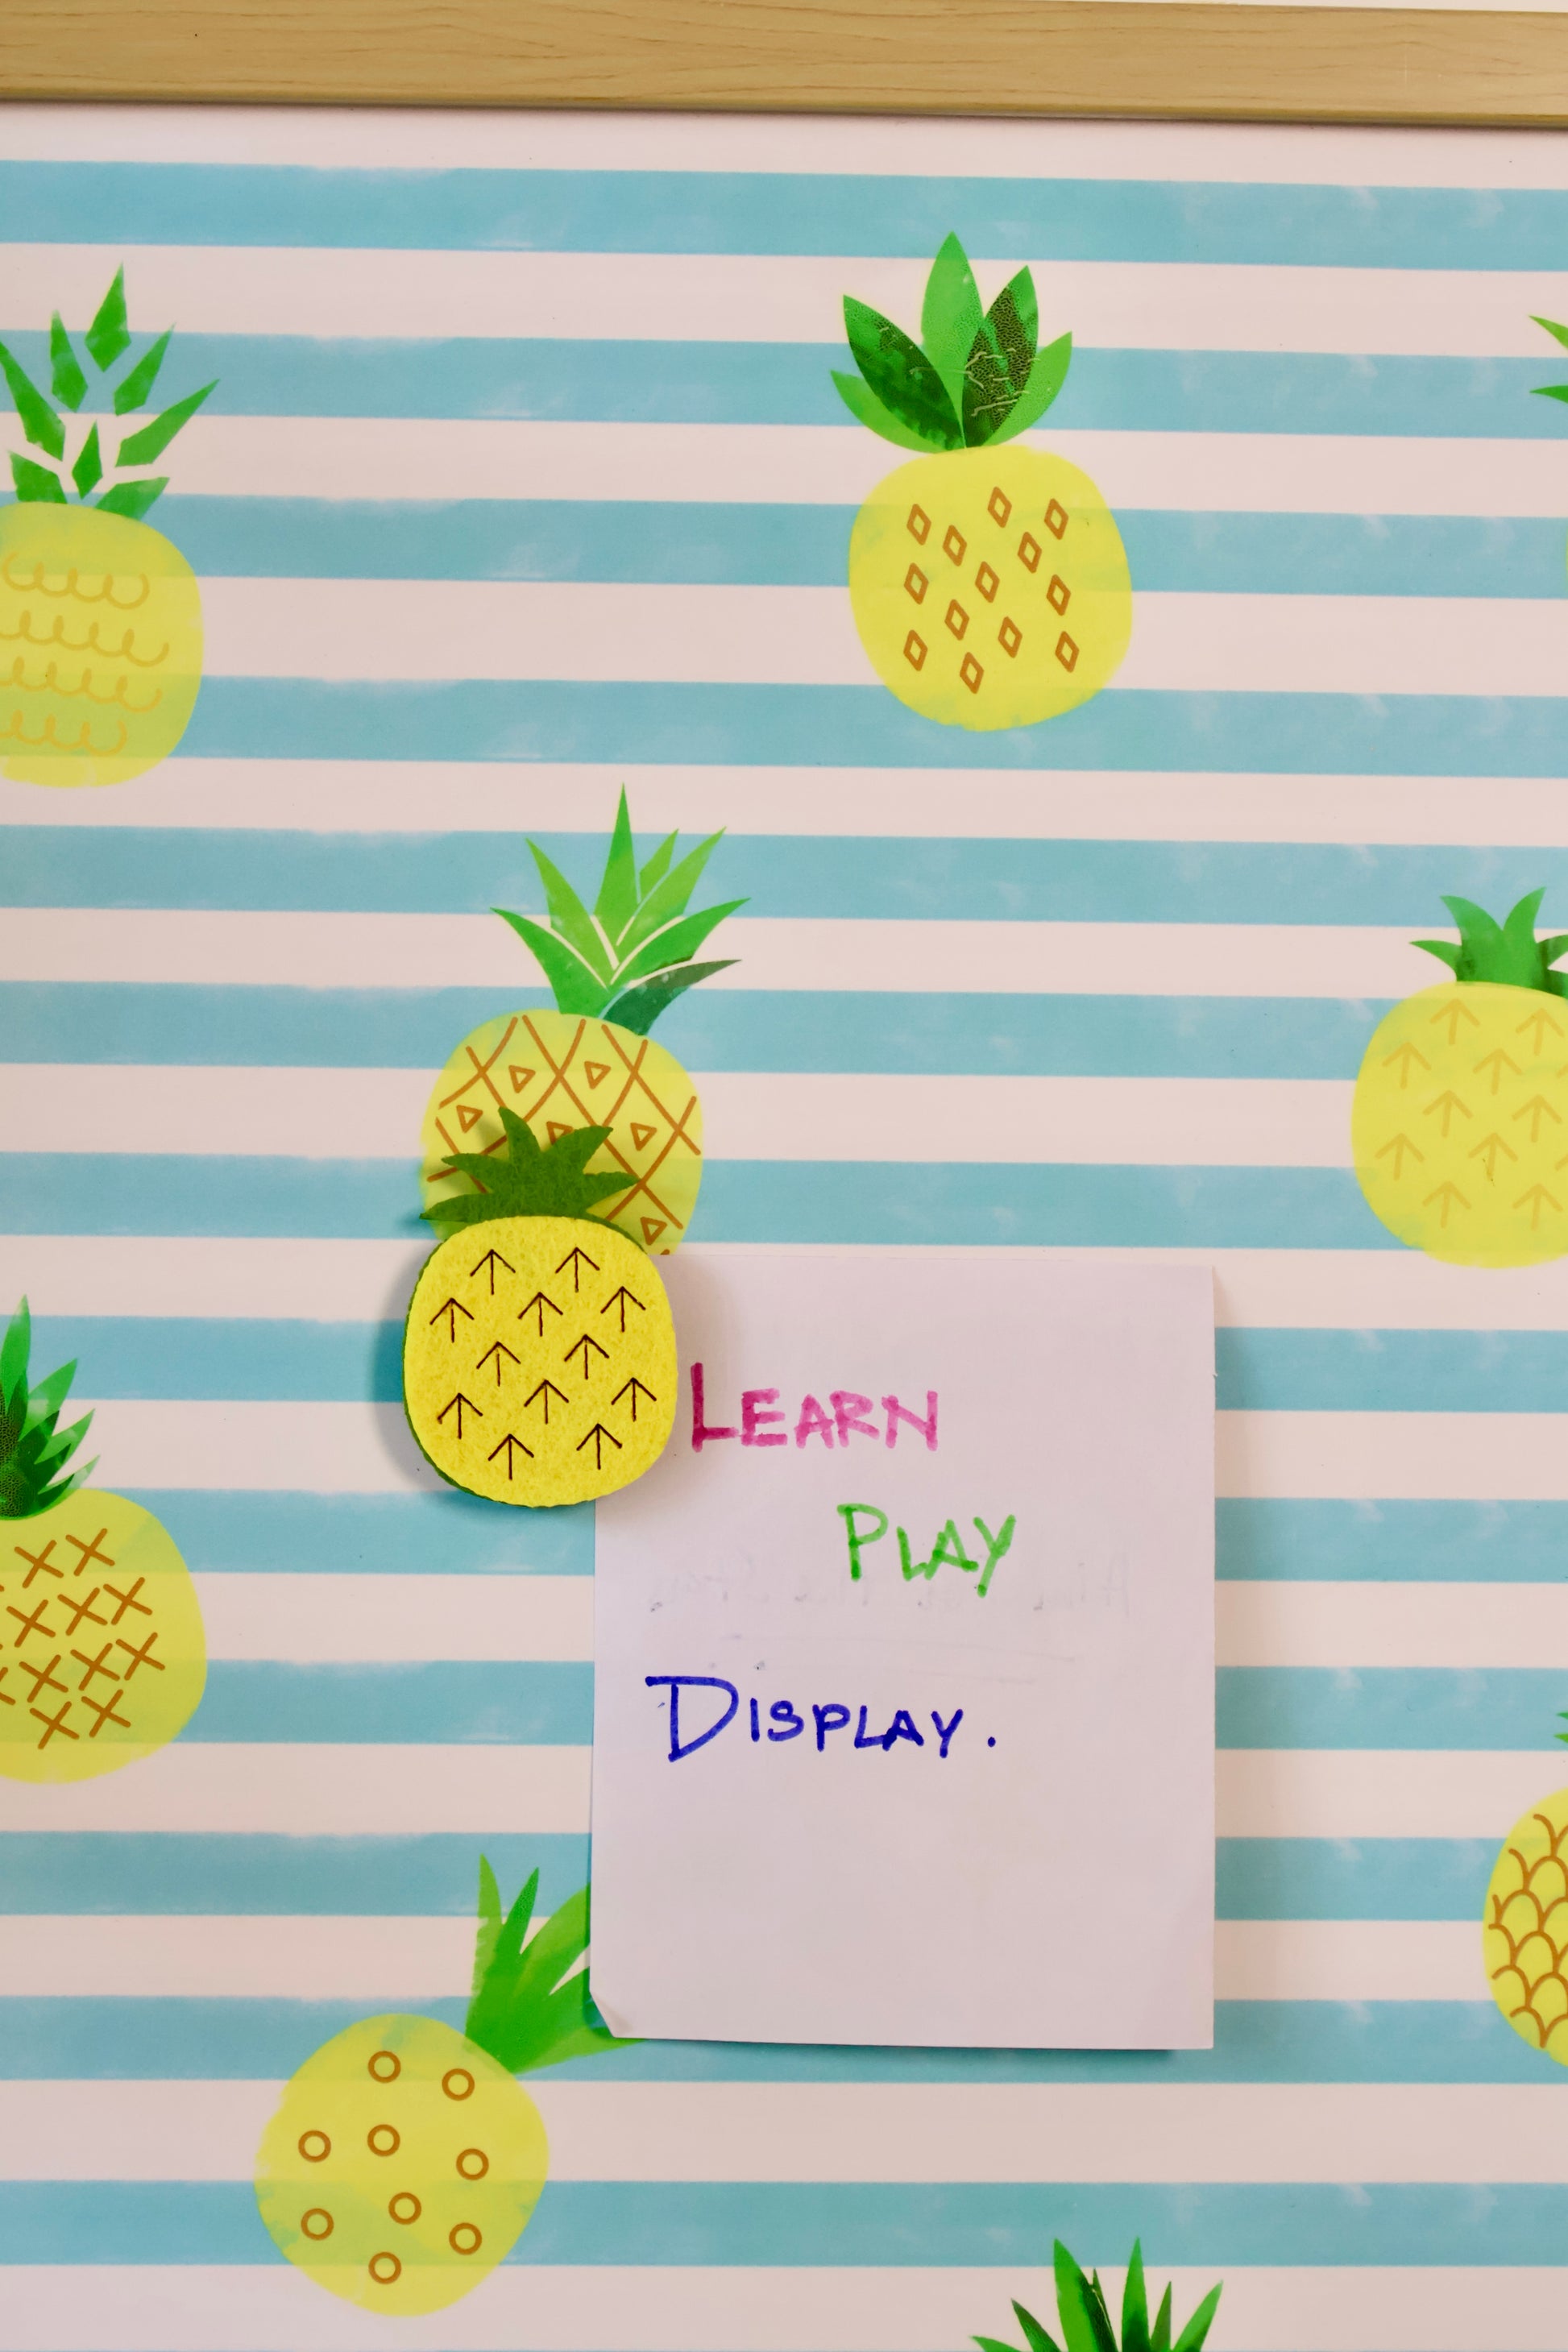 LEARN
PLAY
DISPLAY.